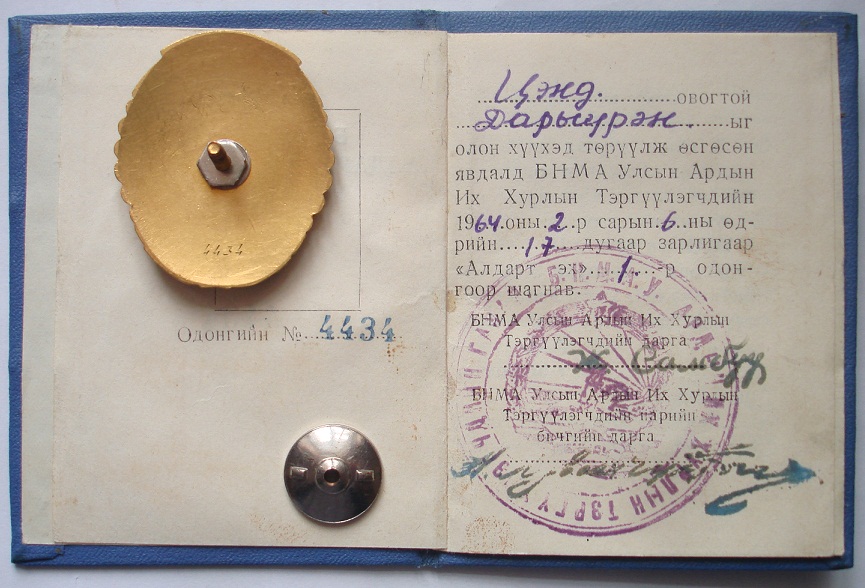 4434
Одонгийн № 4434
Цэнд. овогтой
Дарьсүрэн. ыг
олон хүүхэд төрүүлж өсгөсөн
явдалд БНМА Улсын Ардын
Их Хурлын Тэргүүлэгчдийн
1964 оны 2 р сарын 6 ны өд-
рийн 17 дугаар зарлигаар
«Алдарт эх» 1 -р одон-
гоор шагнав.
БНМА Улсын Ардын Их Хурлын
Тэргүүлэгчдийн дарга
Ж. Самбуу
БНМА Улсын Ардын Их Хурлын
Тэргүүлэгчдийн нарийн
бичгийн дарга
Б.Н.М.А.У.